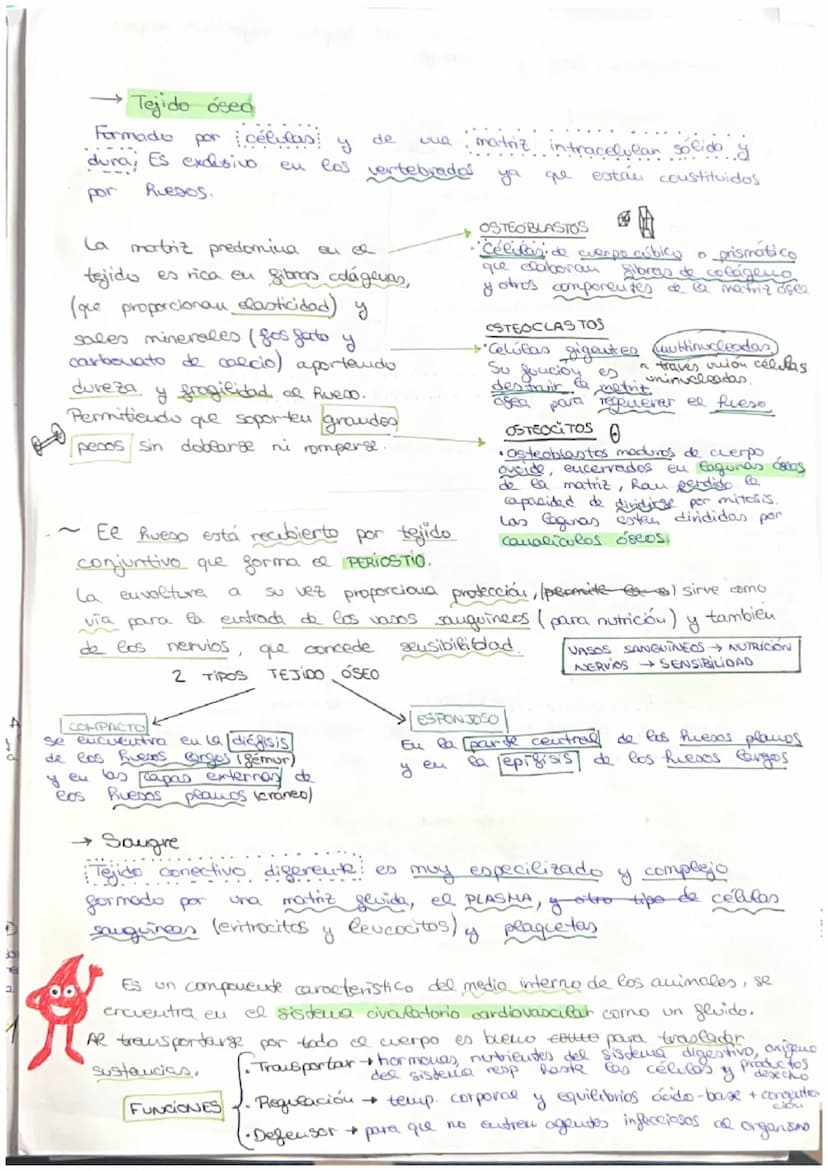 → Tejido óseo
Formado por células y de una matriz intracelular sólida y
dura, Es exclusivo en los vertebrados ya que están constituidos
por huesos.
La matriz predomina en el
tejido es rica en fibras colágenas,
(que proporcionan elasticidad) y
sales minerales (fosfato y
carbonato de calcio) aportando
dureza y fragilidad al hueso.
Permitiendo que soporten grandes
pesos sin doblarse ni romperse.
OSTEOBLASTOS
• Células de cuerpo cúbico o prismático
que elaboran fibras de colágeno
y otros componentes de la matriz ósea
OSTEOCLASTOS
• Células gigantes multinucleadas
a traves unión células
uninucleadas.
Su función es
destruir la matriz
ósea para regenerar el hueso
OSTEOCITOS
• Osteoblastos maduros de cuerpo
ovoide, encerrados en lagunas óseas
de la matriz, han perdido la
capacidad de dividirse por mitosis.
Las lagunas estan divididas por
canalículos óseos.
~ El hueso está recubierto por tejido
conjuntivo que forma el PERIOSTIO.
La envoltura a su vez proporciona protección, (permite la s) sirve como
vía para la entrada de los vasos sanguíneos (para nutrición) y también
de los nervios, que concede sensibilidad.
VASOS SANGUÍNEOS → NUTRICIÓN
NERVIOS → SENSIBILIDAD
2 TIPOS TEJIDO ÓSEO
COMPACTO
se encuentra en la diáfisis
de los huesos largos (fémur)
y en las capas externas de
los huesos planos (cráneo)
ESPONJOSO
En la parte central de los huesos planos
y en la epífisis de los huesos largos
→ Sangre
Tejido conectivo diferente: es muy especilizado y complejo
formado por una matriz fluida, el PLASMA, y otro tipo de células
sanguíneas (eritrocitos y leucocitos) y plaquetas
Es un componente característico del medio interno de los animales, se
encuentra en el sistema circulatorio cardiovascular como un fluido.
Al transportarse por todo el cuerpo es bueno como para trasladar
sustancias.
FUNCIONES
• Transportar → hormonas, nutrientes del sistema digestivo, oxígeno
del sistema resp hasta las células y productos
desecho
• Regulación → temp. corporal y equilibrios ácido-base + congula
ción
• Defensor → para que no entren agentes infecciosos al organismo